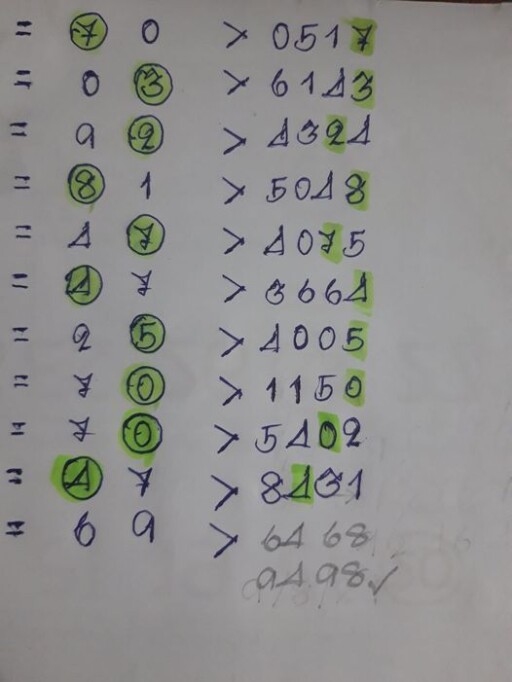 = 7 0 > 0517
= 0 3 > 6143
= 9 2 > 4324
= 8 1 > 5048
= 4 7 > 4075
= 4 7 > 3664
= 2 5 > 4005
= 7 0 > 1150
= 7 0 > 5402
= 4 7 > 8431
= 6 9 > 6468
9498✓